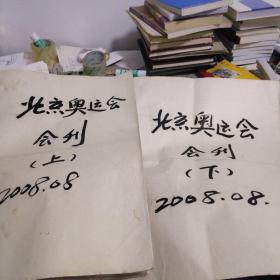 北京奥运会
会刊
(上)
2008.08
北京奥运会
会刊
(下)
2008.08.